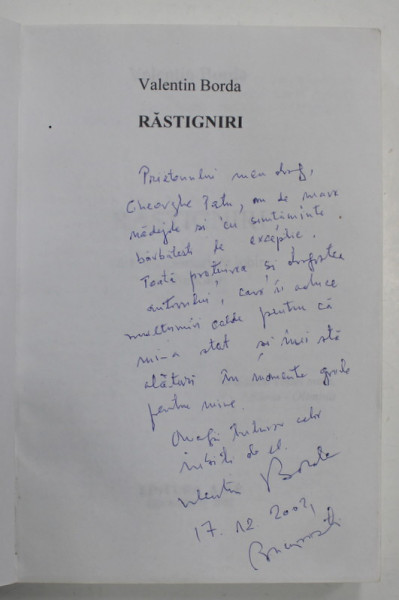 Valentin Borda
RĂSTIGNIRI
Prietenului meu drag,
Gheorghe Tatu, om de mare
nădejde si cu simtăminte
bărbătesti de exceptie.
Toată pretuirea si dragostea
autorului, care îi aduce
multumiri calde pentru că
mi-a stat si îmi stă
alături în momente grele
pentru mine.
Omagii tuturor celor
iubiti de el.
Valentin Borda
17.12.2002,
Bucuresti